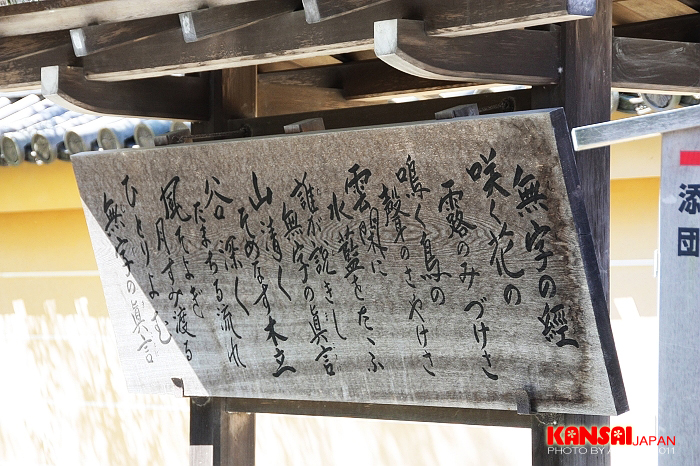 無字の經
咲く花の
露のみづけさ
鳴く鳥の
聲のさやけさ
雲閑に
水藍をたゝふ
誰か説きし
無字の眞言
山清く
そめなす木立
谷深く
たまちる流れ
風そよぎ
月すみ渡る
ひとりよむ
無字の眞言
添
団
KANSAI JAPAN
PHOTO BY